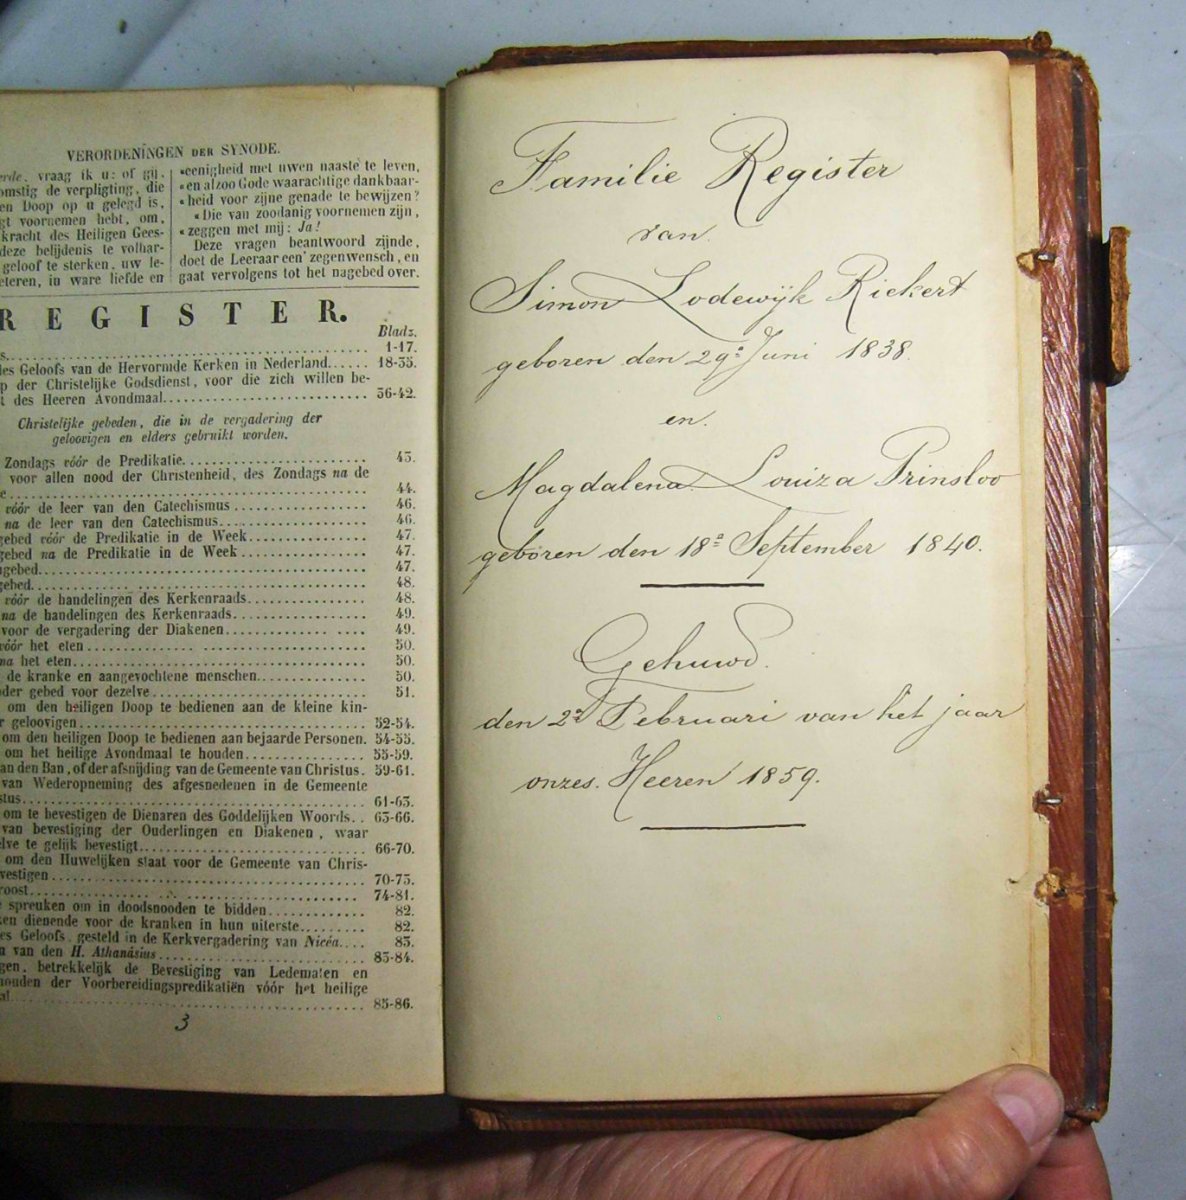 VERORDENINGEN DER SYNODE.
erde, vraag ik u: of gij,
omstig de verpligting, die
en Doop op u gelegd is,
gt voornemen hebt, om,
kracht des Heiligen Gees-
deze belijdenis te volhar-
geloof te sterken, uw le-
eteren, in ware liefde en
«eenigheid met uwen naaste te leven,
«en alzoo Gode waarachtige dankbaar-
«heid voor zijne genade te bewijzen?
«Die van zoodanig voornemen zijn,
«zeggen met mij: Ja!
Deze vragen beantwoord zijnde,
doet de Leeraar een' zegenwensch, en
gaat vervolgens tot het nagebed over.
REGISTER.
Bladz.
s. 1-17.
des Geloofs van de Hervormde Kerken in Nederland. 18-35.
p der Christelijke Godsdienst, voor die zich willen be-
t des Heeren Avondmaal. 36-42.
Christelijke gebeden, die in de vergadering der
geloovigen en elders gebruikt worden.
Zondags vóór de Predikatie. 43.
voor allen nood der Christenheid, des Zondags na de
e 44.
vóór de leer van den Catechismus 46.
na de leer van den Catechismus 46.
gebed vóór de Predikatie in de Week 47.
gebed na de Predikatie in de Week 47.
ngebed. 47.
gebed. 48.
vóór de handelingen des Kerkenraads. 48.
na de handelingen des Kerkenraads. 49.
voor de vergadering der Diakenen 49.
vóór het eten 50.
na het eten 50.
de kranke en aangevochtene menschen. 50.
der gebed voor dezelve 51.
om den heiligen Doop te bedienen aan de kleine kin-
r geloovigen 52-54.
om den heiligen Doop te bedienen aan bejaarde Personen. 54-55.
om het heilige Avondmaal te houden 55-59.
van den Ban, of der afsnijding van de Gemeente van Christus. 59-61.
van Wederopneming des afgesnedenen in de Gemeente
stus 61-63.
om te bevestigen de Dienaren des Goddelijken Woords 63-66.
van bevestiging der Ouderlingen en Diakenen, waar
elve te gelijk bevestigt 66-70.
om den Huwelijken staat voor de Gemeente van Chris-
vestigen 70-73.
roost 74-81.
e spreuken om in doodsnooden te bidden 82.
ken dienende voor de kranken in hun uiterste 82.
es Geloofs, gesteld in de Kerkvergadering van Nicéa 83.
n van den H. Athanásius 83-84.
gen, betrekkelijk de Bevestiging van Ledematen en
houden der Voorbereidingspredikatiën vóór het heilige
al 85-86.
3
Familie Register
van.
Simon Lodewijk Riekert
geboren den 29e Juni 1838.
en.
Magdalena Louiza Prinsloo
geboren den 18e September 1840.
Gehuwd.
den 2de Februari van het jaar
onzes Heeren 1859.